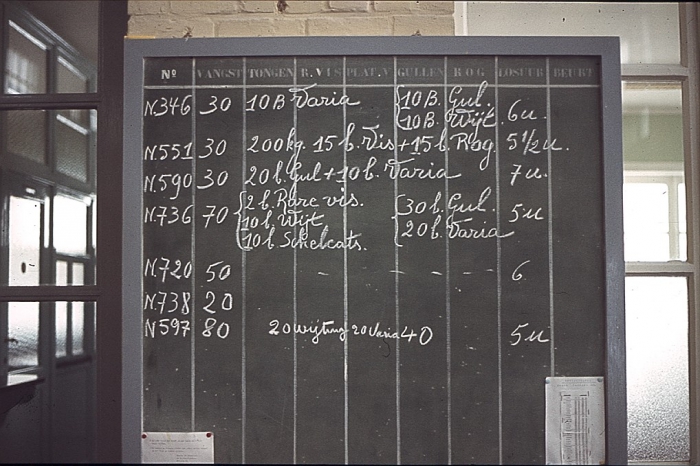 Nº VANGST TONGEN R.VIS PLAT.V GULLEN ROG LOSUUR BEURT
N.346 30 10 B Varia 10 B. Gul. 6u.
10 B. Wijt.
N.551 30 200 kg. 15 b. Vis + 15 b. Rog. 5½u.
N.590 30 20 b. Gul + 10 b. Varia 7u.
N.736 70 2 b. Rare vis. 30 b. Gul. 5u
10 b. Wijt 20 b. Varia
10 b. Schelcats.
N.720 50 - - - - 6
N.738 20
N597 80 20 wijting 20 Varia 40 5u